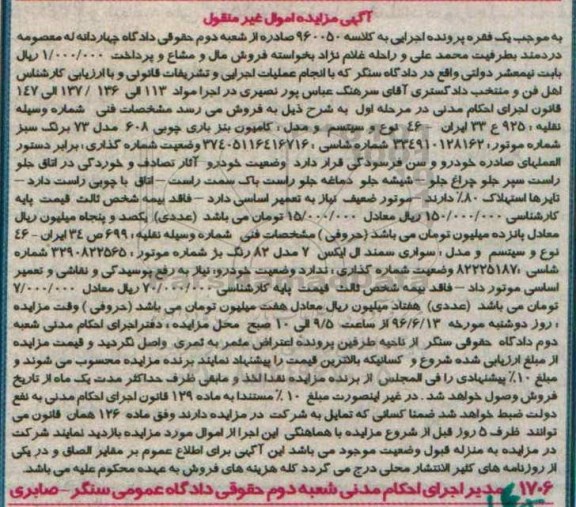 آگهی مزایده اموال غیر منقول
به موجب یک فقره پرونده اجرایی به کلاسه ۹۶۰۰۵۰ صادره از شعبه دوم حقوقی دادگاه چهاردانه له معصومه
دردمند بطرفیت محمد علی و راحله غلام نژاد بخواسته فروش مال و مشاع و پرداخت ۱/۰۰۰/۰۰۰ ریال
بابت نیمعشر دولتی واقع در دادگاه سنگر که با انجام عملیات اجرایی و تشریفات قانونی و با ارزیابی کارشناس
اهل فن و منتخب دادگستری آقای سرهنگ عباس پور نصیری در اجرا مواد ۱۱۳ الی ۱۳۶ / ۱۳۷ الی ۱۴۷
قانون اجرای احکام مدنی در مرحله اول به شرح ذیل به فروش می رسد مشخصات فنی شماره وسیله
نقلیه : ۹۲۵ ع ۳۳ ایران ۴۶ نوع و سیستم و مدل : کامیون بنز باری چوبی ۶۰۸ مدل ۷۳ برنگ سبز
شماره موتور : ۳۳۴۹۱۰۱۲۸۱۶۲ شماره شاسی : ۳۷۴۰۵۱۱۶۴۱۶۷۱۶ وضعیت شماره گذاری : برابر دستور
العملهای صادره خودرو و سن فرسودگی قرار دارد وضعیت خودرو آثار تصادف و خوردگی در اتاق جلو
راست سپر جلو چراغ جلو - شیشه جلو دماغه جلو راست باک سمت راست - اتاق با چوبی راست دارد -
تایرها استهلاک ۸۰٪ دارند - موتور ضعیف نیاز به تعمیر اساسی دارد - فاقد بیمه شخص ثالث قیمت پایه
کارشناسی ۱۵۰/۰۰۰/۰۰۰ ریال معادل ۱۵/۰۰۰/۰۰۰ تومان می باشد (عددی) یکصد و پنجاه میلیون ریال
معادل پانزده میلیون تومان می باشد (حروفی) مشخصات فنی شماره وسیله نقلیه : ۶۹۹ ص ۳۴ ایران - ۴۶
نوع و سیستم و مدل : سواری سمند ال ایکس ۷ مدل ۸۲ رنگ بژ شماره موتور : ۳۲۹۰۸۲۲۵۶۵ شماره
شاسی : ۸۲۲۲۵۱۸۷ وضعیت شماره گذاری : ندارد وضعیت خودرو: نیاز به رفع پوسیدگی و نقاشی و تعمیر
اساسی موتور داد - فاقد بیمه شخص ثالث قیمت پایه کارشناسی ۷۰/۰۰۰/۰۰۰ ریال معادل ۷/۰۰۰/۰۰۰
تومان می باشد (عددی) هفتاد میلیون ریال معادل هفت میلیون تومان می باشد (حروفی) وقت مزایده
: روز دوشنبه مورخه ۹۶/۶/۱۳ از ساعت ۹/۵ الی ۱۰ صبح محل مزایده : دفتر اجرای احکام مدنی شعبه
دوم دادگاه حقوقی سنگر از ناحیه طرفین پرونده اعتراض مثمر به ثمری واصل نگردید و قیمت مزایده
از مبلغ ارزیابی شده شروع و کسانیکه بالاترین قیمت را پیشنهاد نمایند برنده مزایده محسوب می شوند و
مبلغ ۱۰٪ پیشنهادی را فی المجلس از برنده مزایده نقدا اخذ و مابقی ظرف حداکثر مدت یک ماه از تاریخ
فروش وصول خواهد شد . در غیر اینصورت مبلغ ۱۰٪ مستندا به ماده ۱۲۹ قانون اجرای احکام مدنی به نفع
دولت ضبط خواهد شد ضمنا کسانی که تمایل به شرکت در مزایده دارند وفق ماده ۱۲۶ همان قانون می
توانند ظرف ۵ روز قبل از شروع مزایده با هماهنگی این اجرا از اموال مورد مزایده بازدید نمایند شرکت
در مزایده به منزله قبول وضعیت موجود می باشد این آگهی برای اطلاع عموم بر معابر الصاق و در یکی
از روزنامه های کثیر الانتشار محلی درج می گردد کله هزینه های فروش به عهده محکوم علیه می باشد.
۱۷۰۶ مدیر اجرای احکام مدنی شعبه دوم حقوقی دادگاه عمومی سنگر - صابری